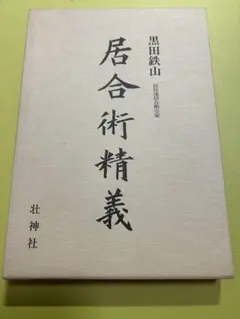 黒田鉄山
居合術精義
壮神社